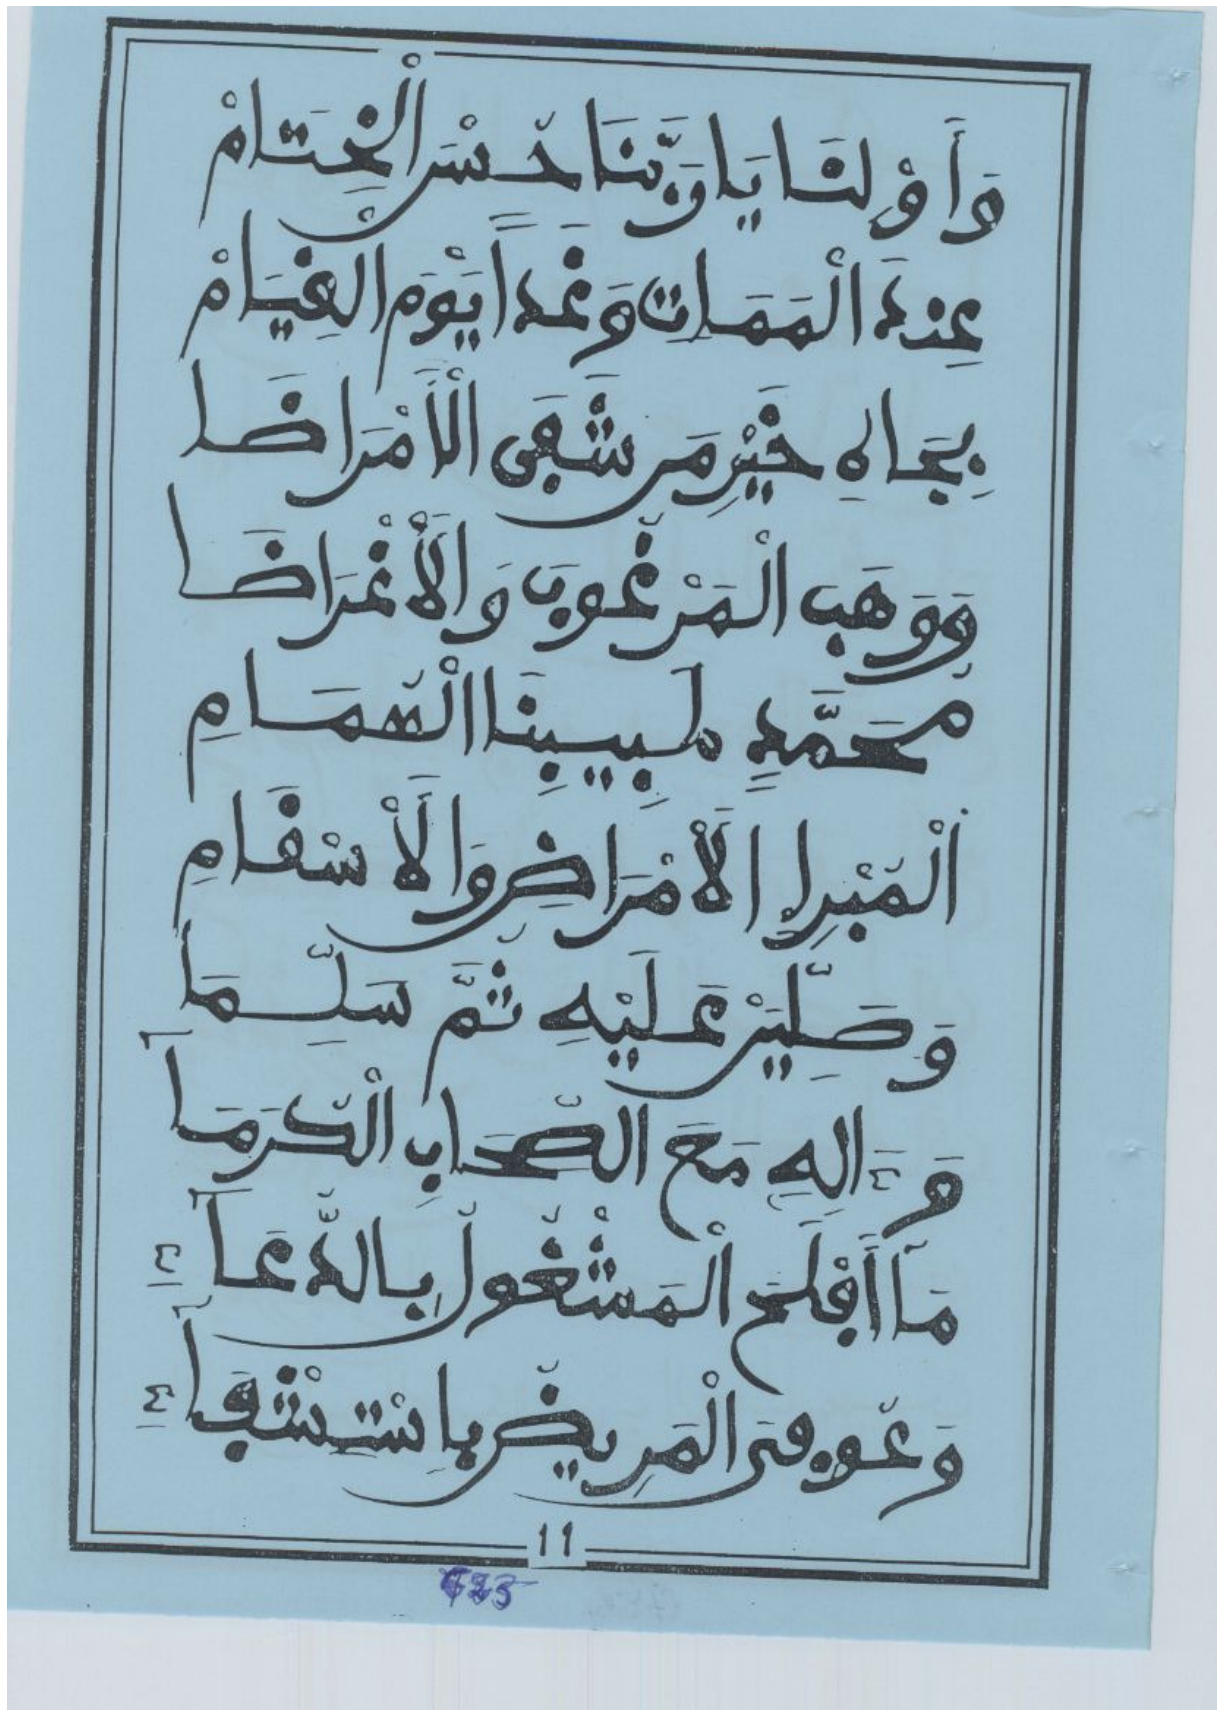 وَأَوْلِنَا يَا رَبَّنَا حُسْنَ الْخِتَامْ
عِنْدَ الْمَمَاتِ وَغَدًا يَوْمَ الْقِيَامْ
بِجَاهِ خَيْرِ مَنْ شَفَى الْأَمْرَاضَا
وَوَهَبَ الْمَرْغُوبَ وَالْأَغْرَاضَا
مُحَمَّدٍ طَبِيبِنَا الْهُمَامِ
الْمُبْرِإِ الْأَمْرَاضِ وَالْأَسْقَامِ
وَصَلِّيَنْ عَلَيْهِ ثُمَّ سَلِّمَا
وَءَالِهِ مَعَ الصِّحَابِ الْكُرَمَا
مَا أَفْلَحَ الْمَشْغُولُ بِالدُّعَاءِ
وَعُوفِيَ الْمَرِيضُ بِاسْتِشْفَاءِ
11
623